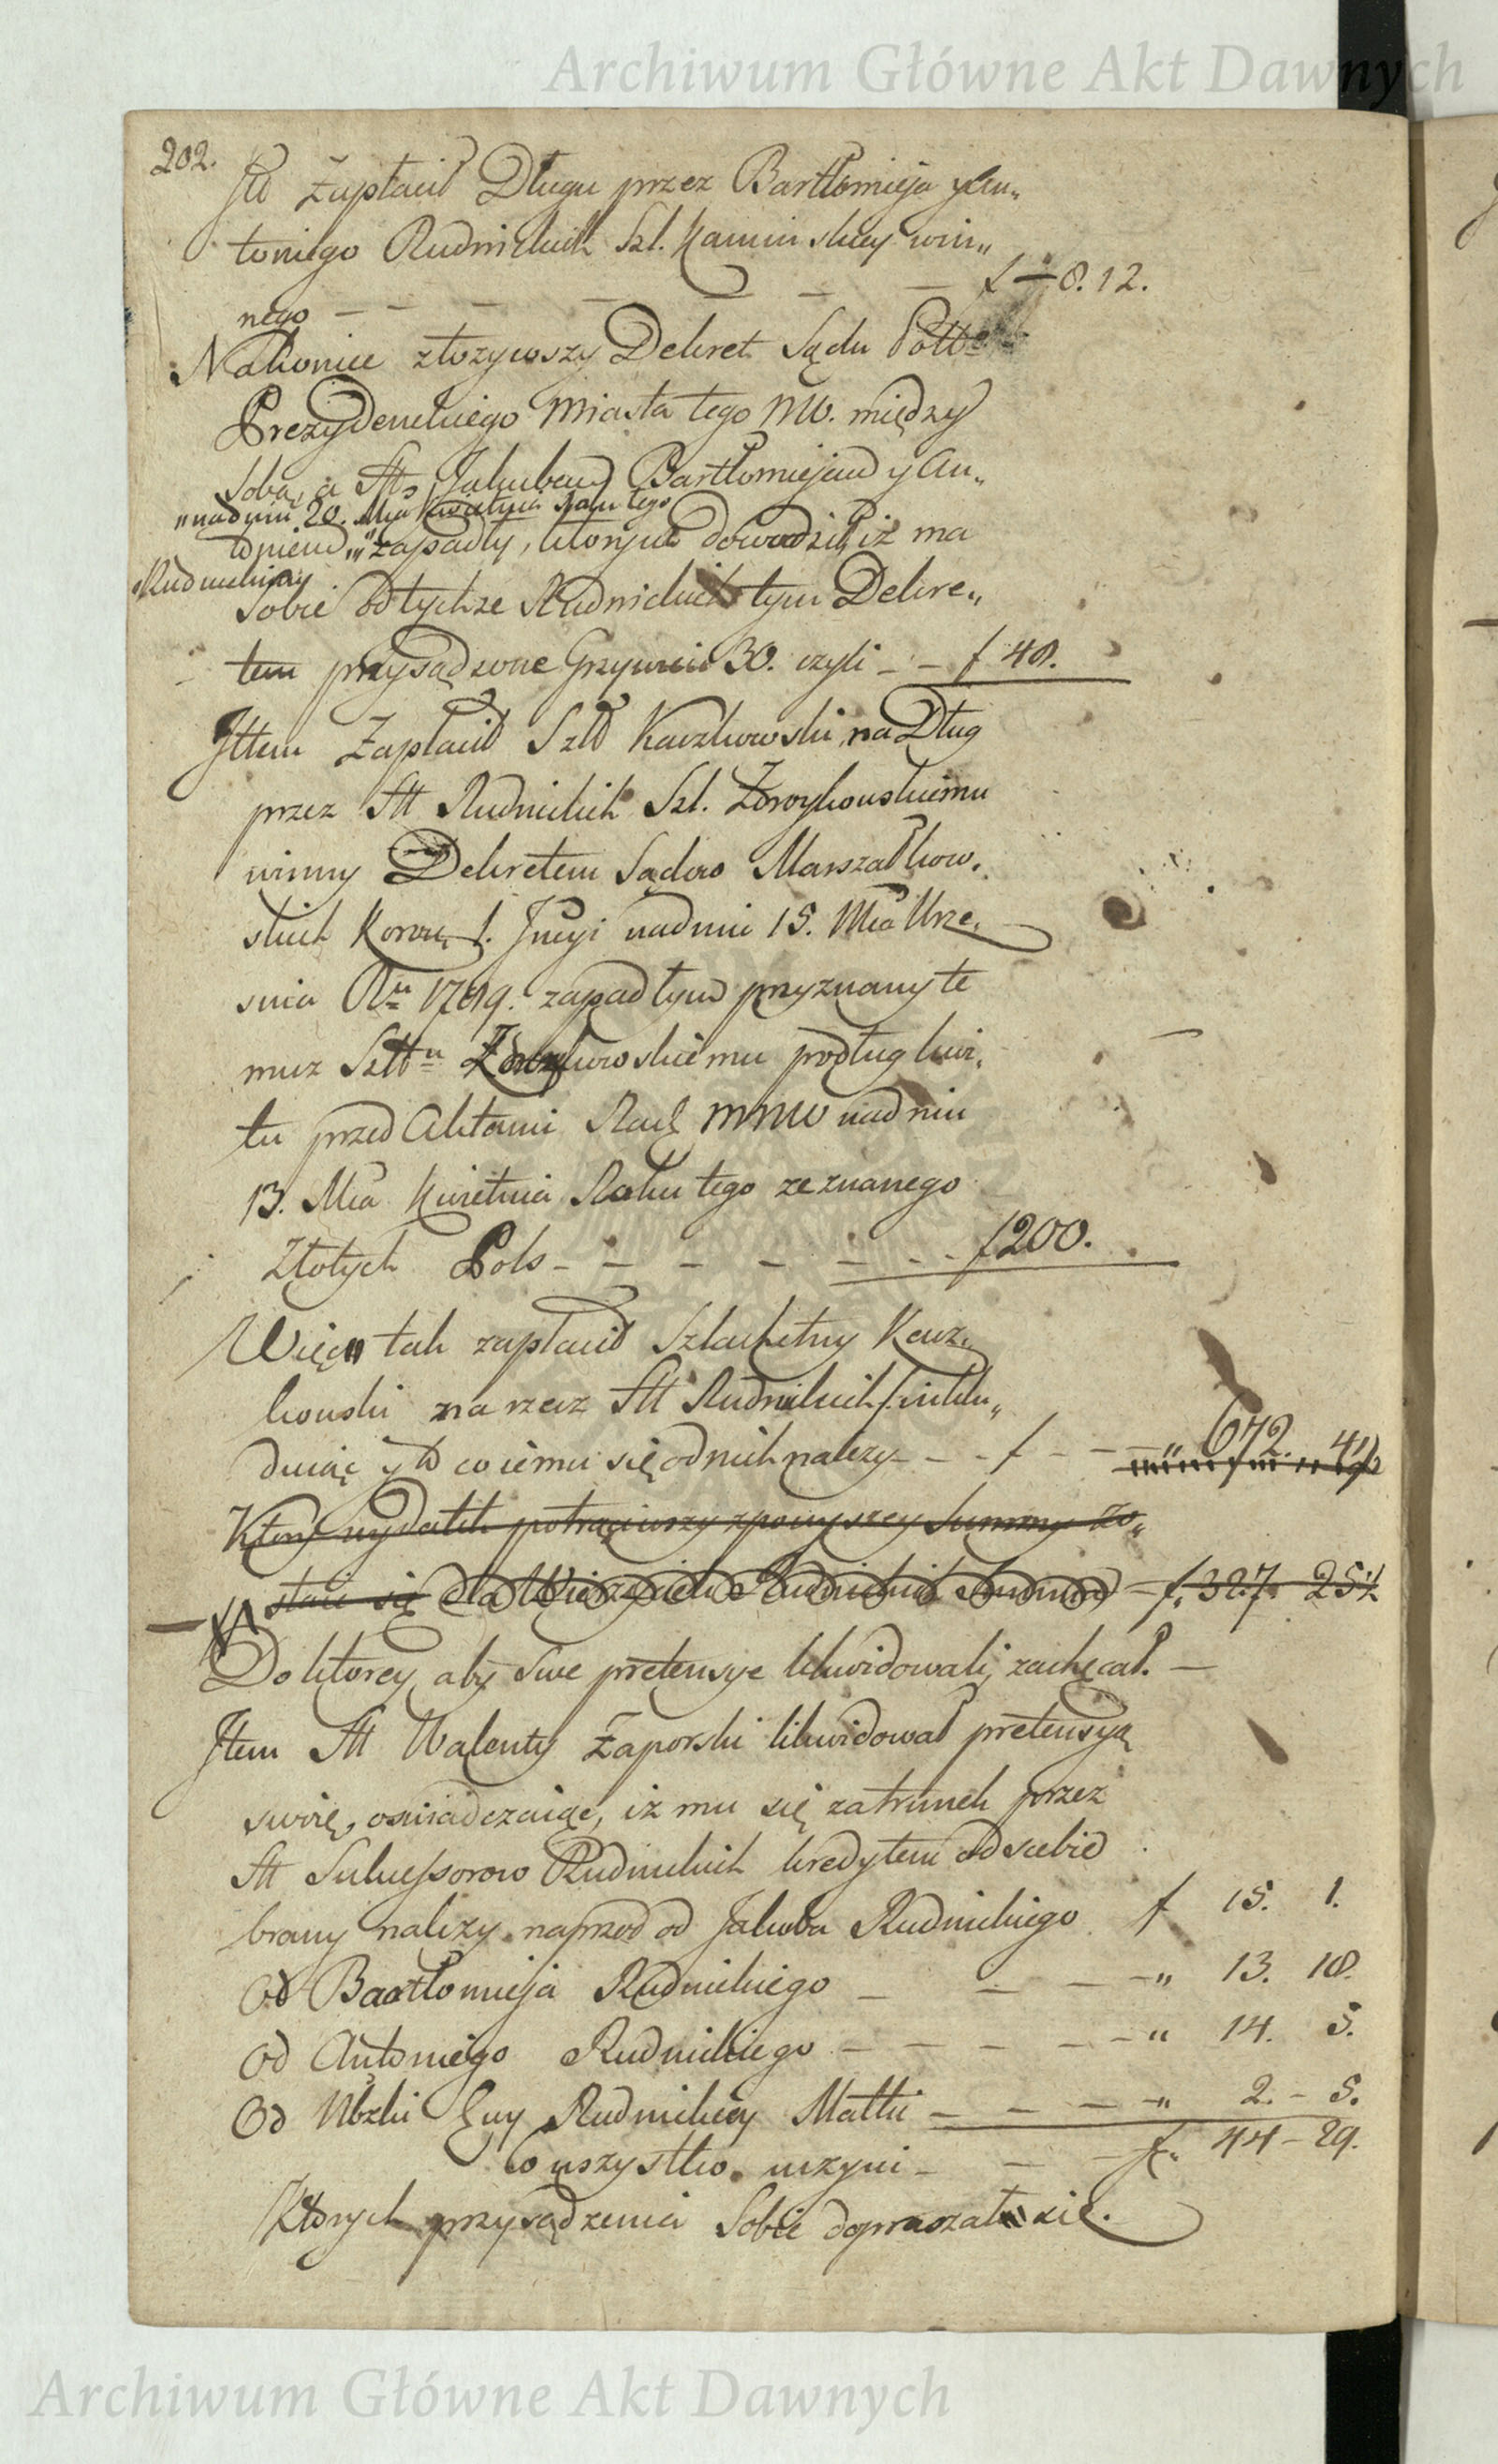 Archiwum Główne Akt Dawnych
202.
Jtt Zapłacił Długu przez Bartłomieja y An„
toniego Rudnickich Szl. Kaminskiey win„
nego — — — — — — f — 8. 12.
Nakoniec złozywszy Dekret Sądu Pott
Prezydenckiego Miasta tego MW. między
Sobą, a Stt Jakubem Bartłomiejem y An„
„nadniu 20. Mca Kwietnia Roku tego
toniem „„ zapadły, ktorym dowodził, iż ma
Rudnickiemi
Sobie od tychze Rudnickich tym Dekre„
tem przysądzone Grzywien 30. czyli — — f 48.
Jttem Zapłacił Szltt Kaczkowski, na Dług
przez Stt Rudnickich Szl. Zdroykowskiemu
winny Dekretem Sądow Marszałkow.
skich Koron. 1. Jncyi nadniu 15. Mca Wrze.
snia Ru 1789. zapadłym przyznany te
muz Szlttu podług kwi.
tu przed Aktami Rad MMW nadniu
13. Mca Kwietnia Roku tego zeznanego
Złotych Pols — — — — — — f 200.
Więc tak zapłacił Szlachetny Kacz„
kowski na rzecz Stt Rudnickich /: inklu„
duiąc y to co iemu się od nich nalezy — — f — — „ 672. 4½
Ktory wydatek potrąciwszy z powyszey Summy zo„
staie się dla Wierzycieli Rudnickich Summa — f. 327. 25½
Do ktorey, aby Swe pretensye likwidowali, zachęcał. —
Jtem Stt Walenty Zaporski likwidował pretensyą
swoię, oswiadczaiąc, iz mu się za trunek przez
Stt Sukcessorow Rudnickich kredytem od siebie
brany nalezy naprzod od Jakuba Rudnickiego f 15. 1.
Od Bartłomieja Rudnickiego — — — — „ 13. 18.
Od Antoniego Rudnickiego — — — — — „ 14. 5.
Od Ubzki Ewy Rudnickiey Matki — — — — „ 2. — 5.
Co wszystko uczyni — — — f. 44 — 29.
Ktorych przysądzenia Sobie dopraszał się.
Archiwum Główne Akt Dawnych